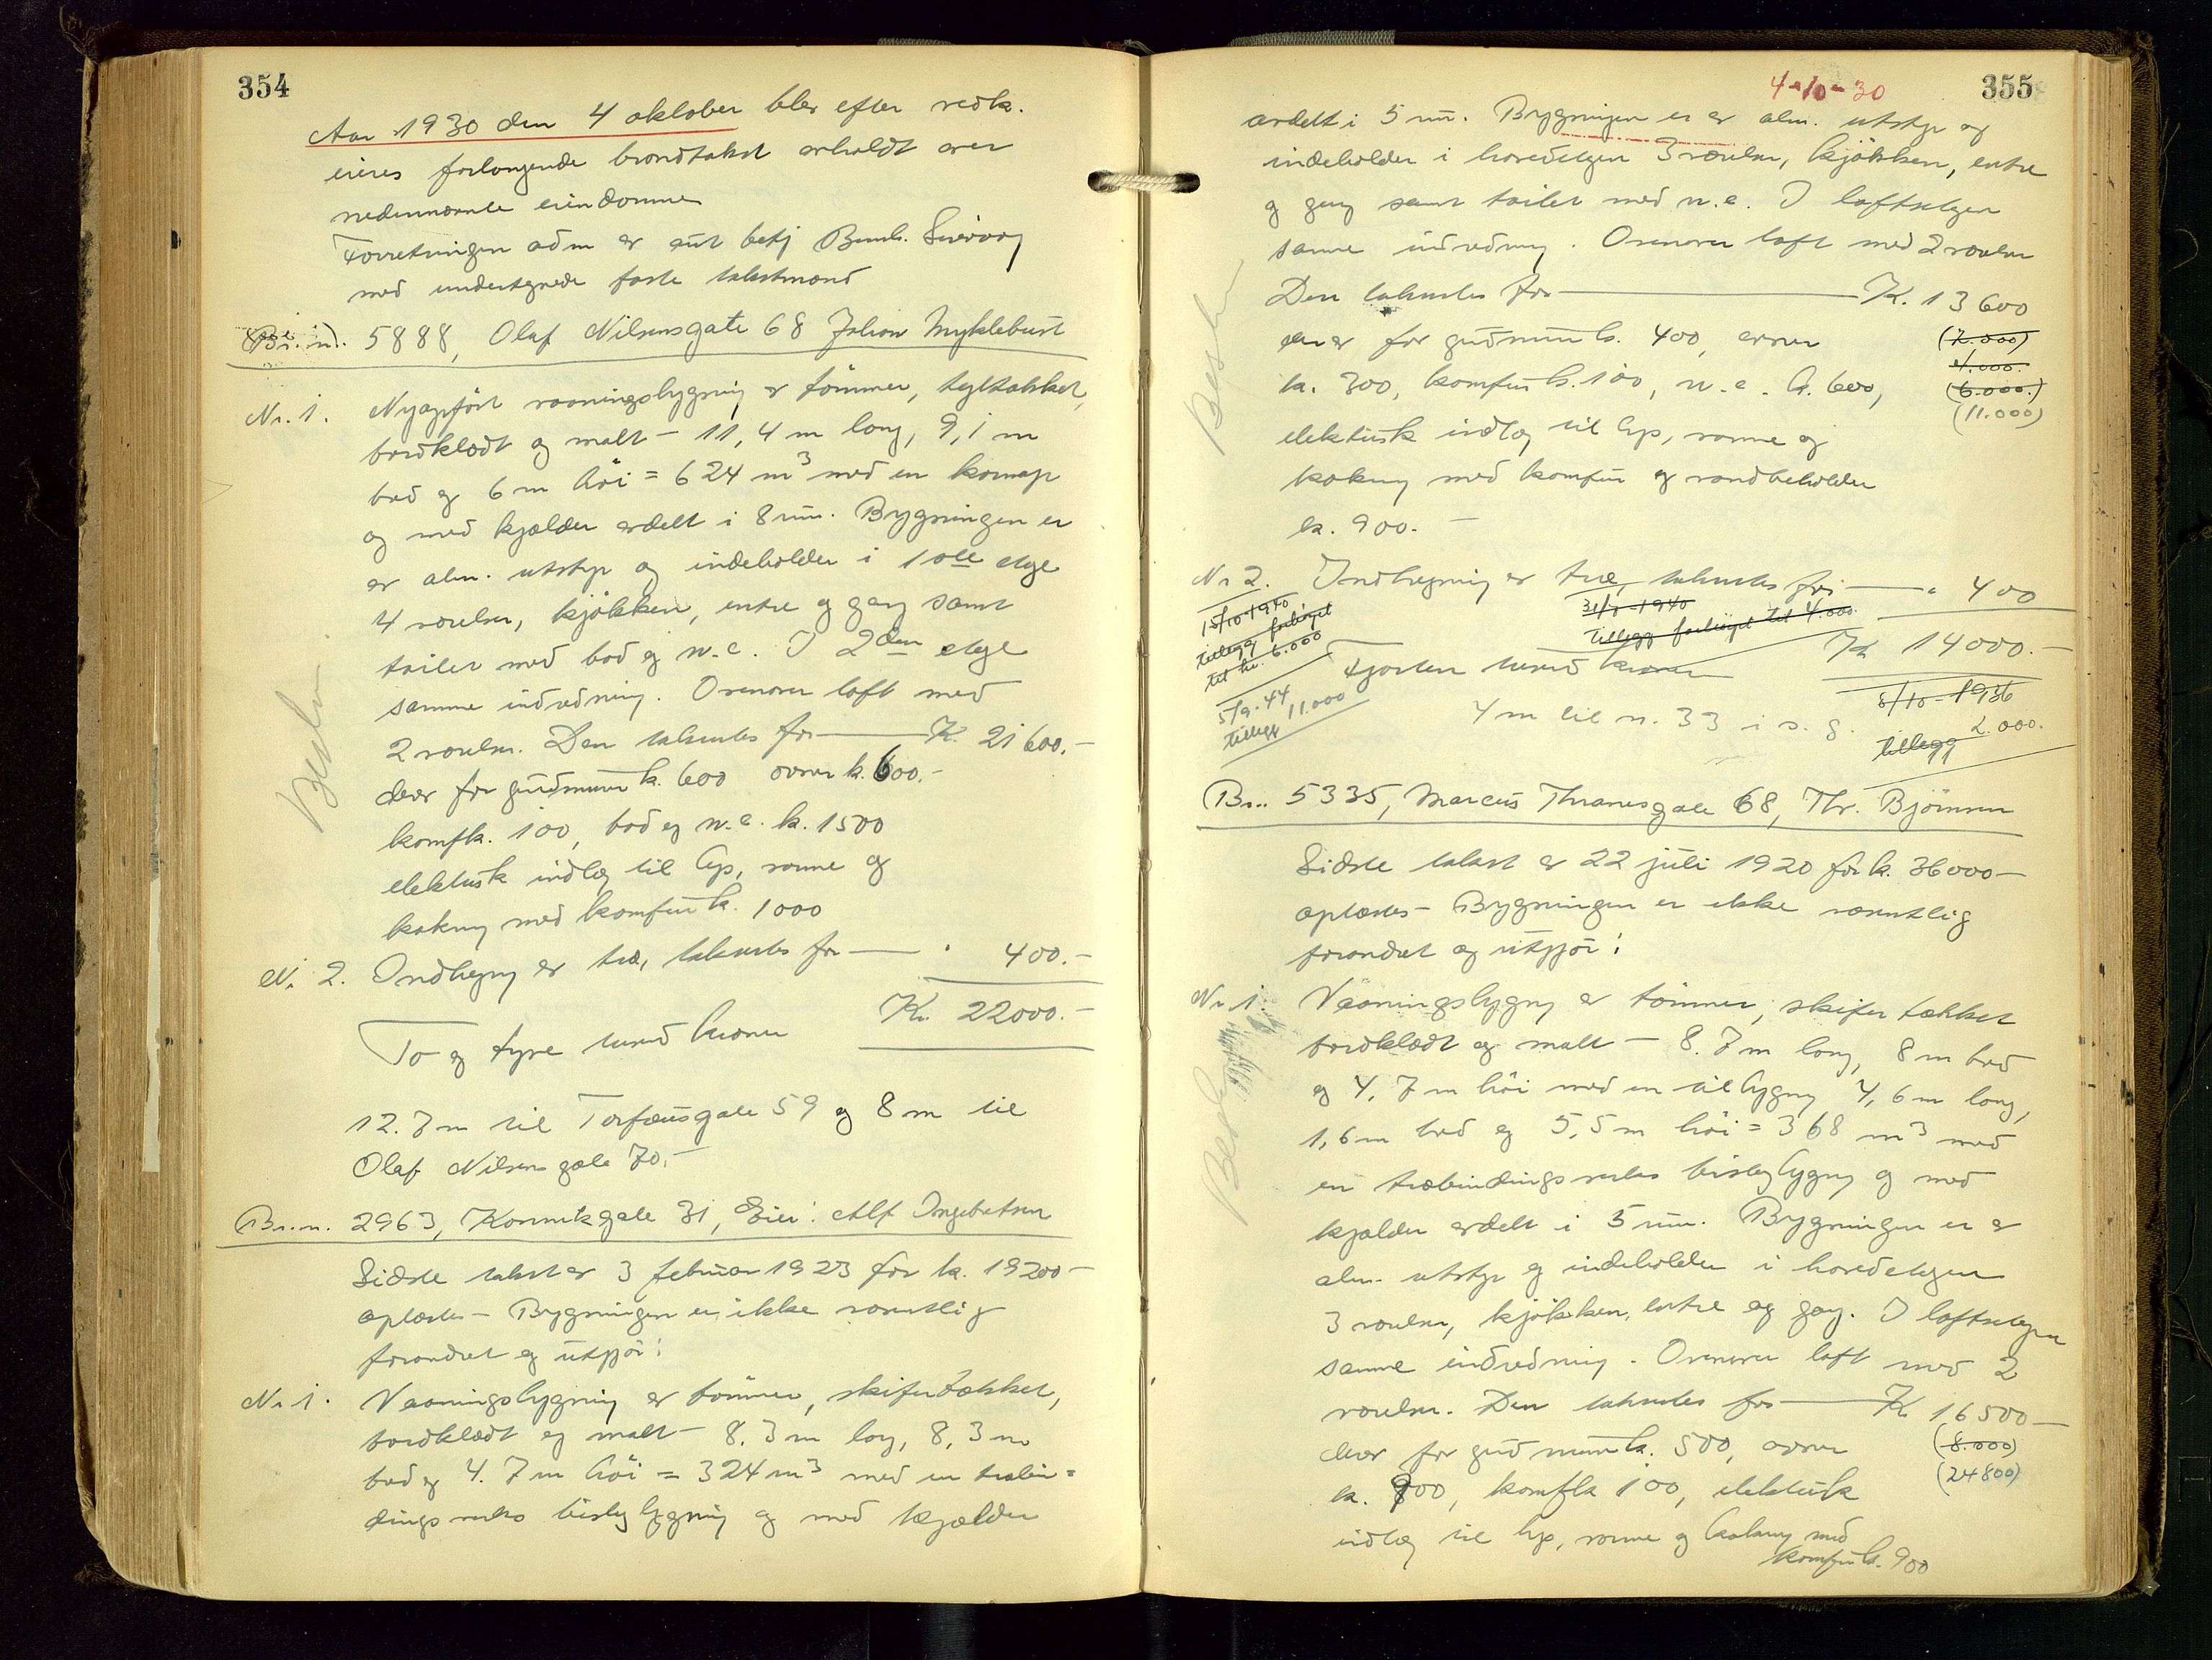 354
Aar 1930 den 4 oktober blev efter vedk.
eieres forlangende brandtakst avholdt over
nedennævnte eiendomme
Forretningen adm av aut betj Bernh.
med undertegnede faste takstmænd
Br. n. 5888, Olaf Nilsensgate 68 Johan Myklebust
Nr. 1. Nyopført vaaningsbygning av tömmer, tegltakket,
bordklædt og malt – 11,4 m lang, 9,1 m
bred og 6 m höi = 624 m³ med en kvinap
og med kjælder avdelt i 8 rum. Bygningen er
av alm. utstyr og indeholder i 1ste etge
4 værelser, kjökken, entre og gang samt
toilet med bad og w.c. I 2den etge
samme indredning. Ovenover loft med
2 værelser. Den takseres for — K. 21600.–
derav for grundmur k. 600 ovner k. 600.–
komf k. 100, bad og w.c. k. 1500
elektrisk indlæg til lys, varme og
kokning med komfur k. 1000
Nr. 2. Indhegning av træ, takseres for — " 400.–
Kr. 22000.–
To og tyve tusend kroner
12.7 m til Torfæusgate 59 og 8 m til
Olaf Nilsens gate 70.–
Br. n. 2963, Kannikgate 31, Eier: Alf Ingebretsen
Sidste takst av 3 februar 1923 for k. 19200–
oplæstes – Bygningen er ikke væsentlig
forandret og utgjör:
Nr 1. Vaaningsbygning av tömmer, skifertækket,
bordklædt og malt – 8,3 m lang, 8,3 m
bred og 4.7 m höi = 324 m³ med en træbin=
dingsverks bislagbygning og med kjælder
Besk
4-10-30
355
avdelt i 5 rum. Bygningen er av alm. utstyr og
indeholder i hovedetgen 3 værelser, kjökken, entre
og gang samt toilet med w.c. I loftsetgen
samme indredning. Ovenover loft med 2 værelser
Den takseres for — K. 13600
derav for grundmur k. 400, ovner
(2.000)
4.000
k. 300, komfur k. 100, w.c. k. 600,
(6.000.)
(11.000)
elektrisk indlæg til lys, varme og
kokning med komfur og vandbeholder
k. 900.–
Nr 2. Indhegning av træ, takseres for — " 400
15/10-1940
tillegg forhöyet
til kr. 6.000
31/7-1940
tillegg forhöyet til 4.000
K 14000.–
Fjorten tusend kroner
5/9-44
tillegg 11.000
4 m til n. 33 i s. g.
8/10-1936
tillegg 2.000.
Br. n. 5335, Marcus Thranesgate 68, Thr. Björnsen
Sidste takst av 22 juli 1920 for k. 36000–
oplæstes – Bygningen er ikke væsentlig
forandret og utgjör:
Nr 1. Vaaningsbygning av tömmer, skifertækket
bordklædt og malt – 8.7 m lang, 8 m bred
og 4,7 m höi med en tilbygning 4,6 m lang,
1,6 m bred og 5,5 m höi = 368 m³ med
en træbindingsverks bislagbygning og med
kjælder avdelt i 5 rum. Bygningen er av
alm. utstyr og indeholder i hovedetgen
3 værelser, kjökken, entre og gang. I loftsetgen
samme indredning. Ovenover loft med 2
værelser. Den takseres for — K 16500–
derav for grundmur k. 500, ovner
(8.000)
(24800)
k. 900, komf k 100, elektrisk
indlæg til lys, varme og kokning med
komfur k. 900
Besk
Besk